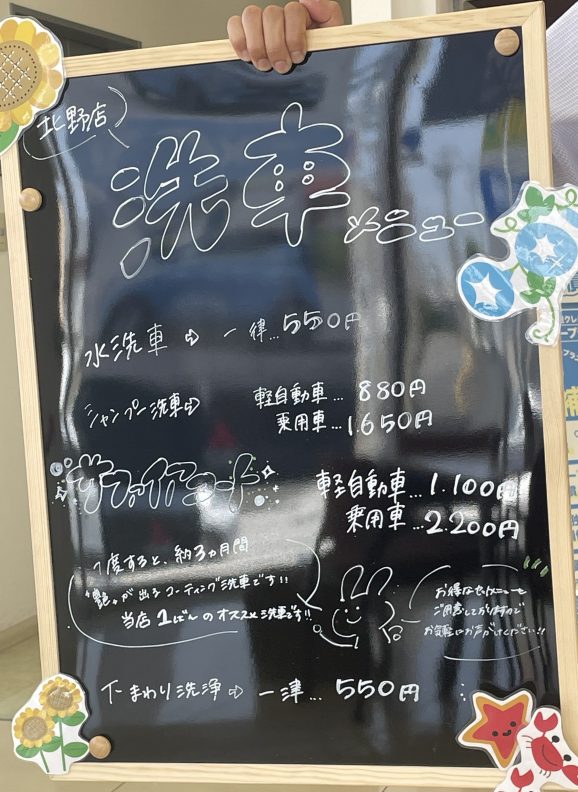 北野店
洗車メニュー
水洗車⇨ 一律…550円
シャンプー洗車⇨ 軽自動車…880円
乗用車…1.650円
サファイアコート 軽自動車…1.100円
乗用車…2.200円
1度すると、約3ヵ月間
"艶"が出るコーティング洗車です!!
当店1ばんのオススメ洗車です!!
お得なセットメニューも
ご用意しておりますので
お気軽にお声がけください!!
下まわり洗浄⇨ 一津…550円